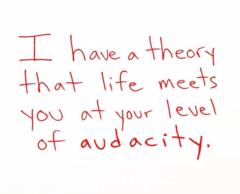 I have a theory
that life meets
you at your level
of audacity.